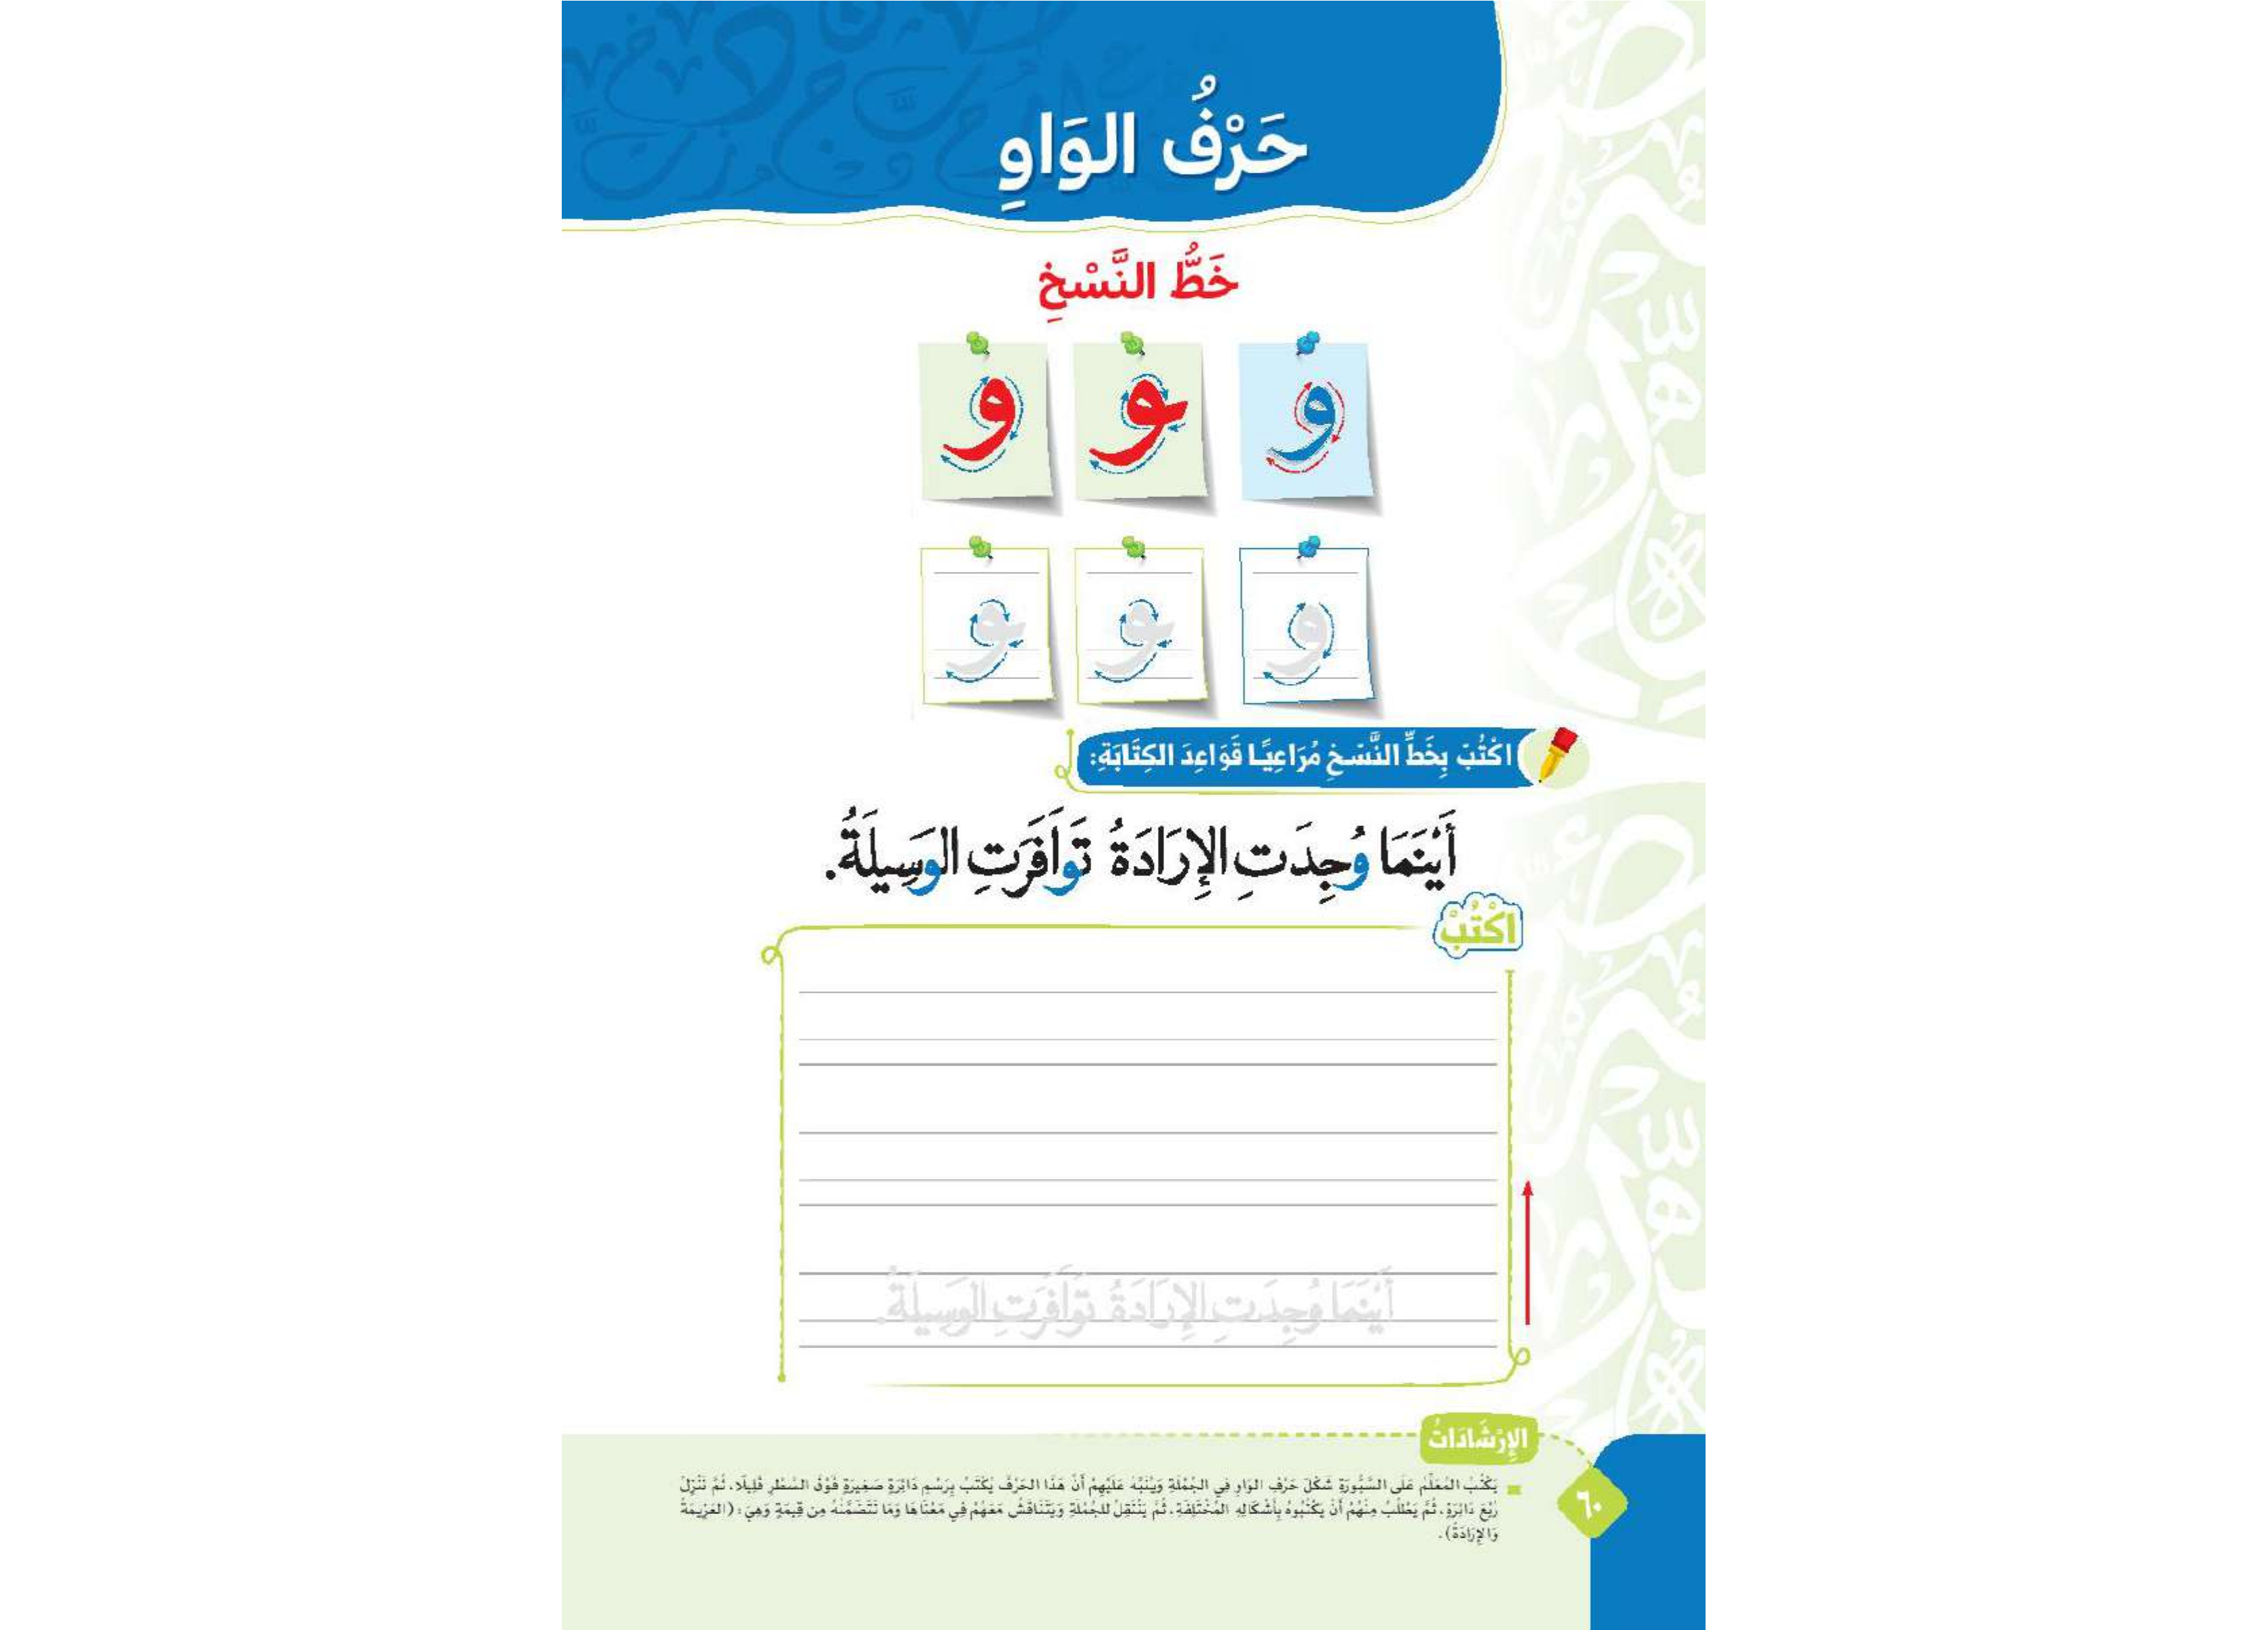 حَرْفُ الوَاوِ
خَطُّ النَّسْخِ
و ـو و
و ـو ـو
اكْتُبْ بِخَطِّ النَّسْخِ مُرَاعِيًا قَوَاعِدَ الكِتَابَةِ:
أَيْنَمَا وُجِدَتِ الإِرَادَةُ تَوَافَرَتِ الوَسِيلَةُ.
اكْتُبْ
أَيْنَمَا وُجِدَتِ الإِرَادَةُ تَوَافَرَتِ الوَسِيلَةُ.
الإِرْشَادَاتُ
يَكْتُبُ المُعَلِّمُ عَلَى السَّبُّورَةِ شَكْلَ حَرْفِ الوَاوِ فِي الجُمْلَةِ وَيُنَبِّهُ عَلَيْهِمْ أَنَّ هَذَا الحَرْفَ يُكْتَبُ بِرَسْمِ دَائِرَةٍ صَغِيرَةٍ فَوْقَ السَّطْرِ قَلِيلًا، ثُمَّ نَنْزِلُ
رُبْعَ دَائِرَةٍ، ثُمَّ يَطْلُبُ مِنْهُمْ أَنْ يَكْتُبُوهُ بِأَشْكَالِهِ المُخْتَلِفَةِ، ثُمَّ يَنْتَقِلُ لِلجُمْلَةِ وَيَتَنَاقَشُ مَعَهُمْ فِي مَعْنَاهَا وَمَا تَتَضَمَّنُهُ مِن قِيمَةٍ وَهِيَ: (العَزِيمَةُ
وَالإِرَادَةُ).
٦٠